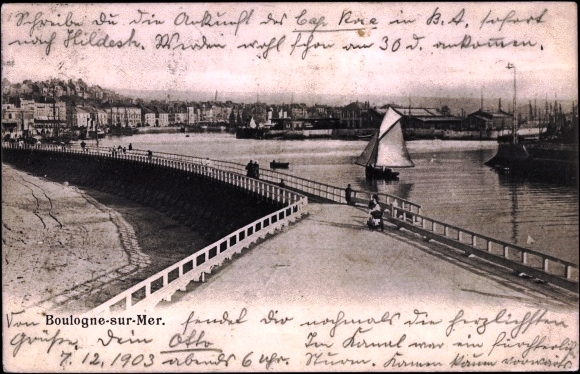 Schreibe du die Ankunft des Cap. Roca in B. A. sofort
nach Hildesh. Werden wohl schon am 30 d. ankommen.
Von Boulogne-sur-Mer. sendet dir nochmals die herzlichsten
Grüße, Dein Otto Im Kanal war ein fürchterlich
7.12.1903 abends 6 Uhr. Sturm. Kamen kaum vorwärts